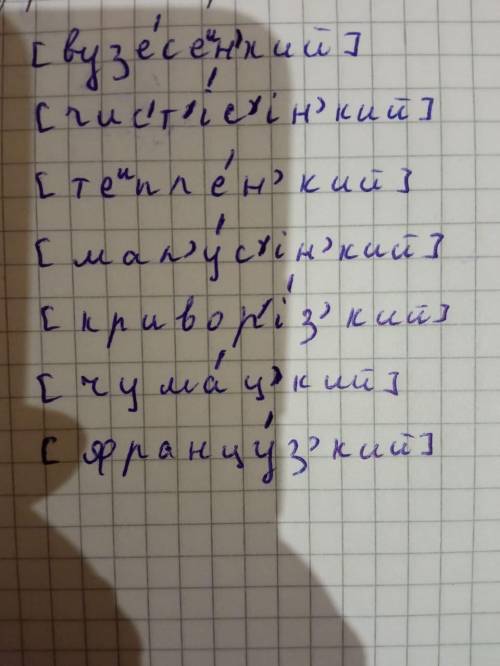 [вузе́се^ин'кий]
[чис'т'і́с'ін'кий]
[те^ипле́н'кий]
[мал'у́с'ін'кий]
[кривор'і́з'кий]
[чума́ц'кий]
[францу́з'кий]